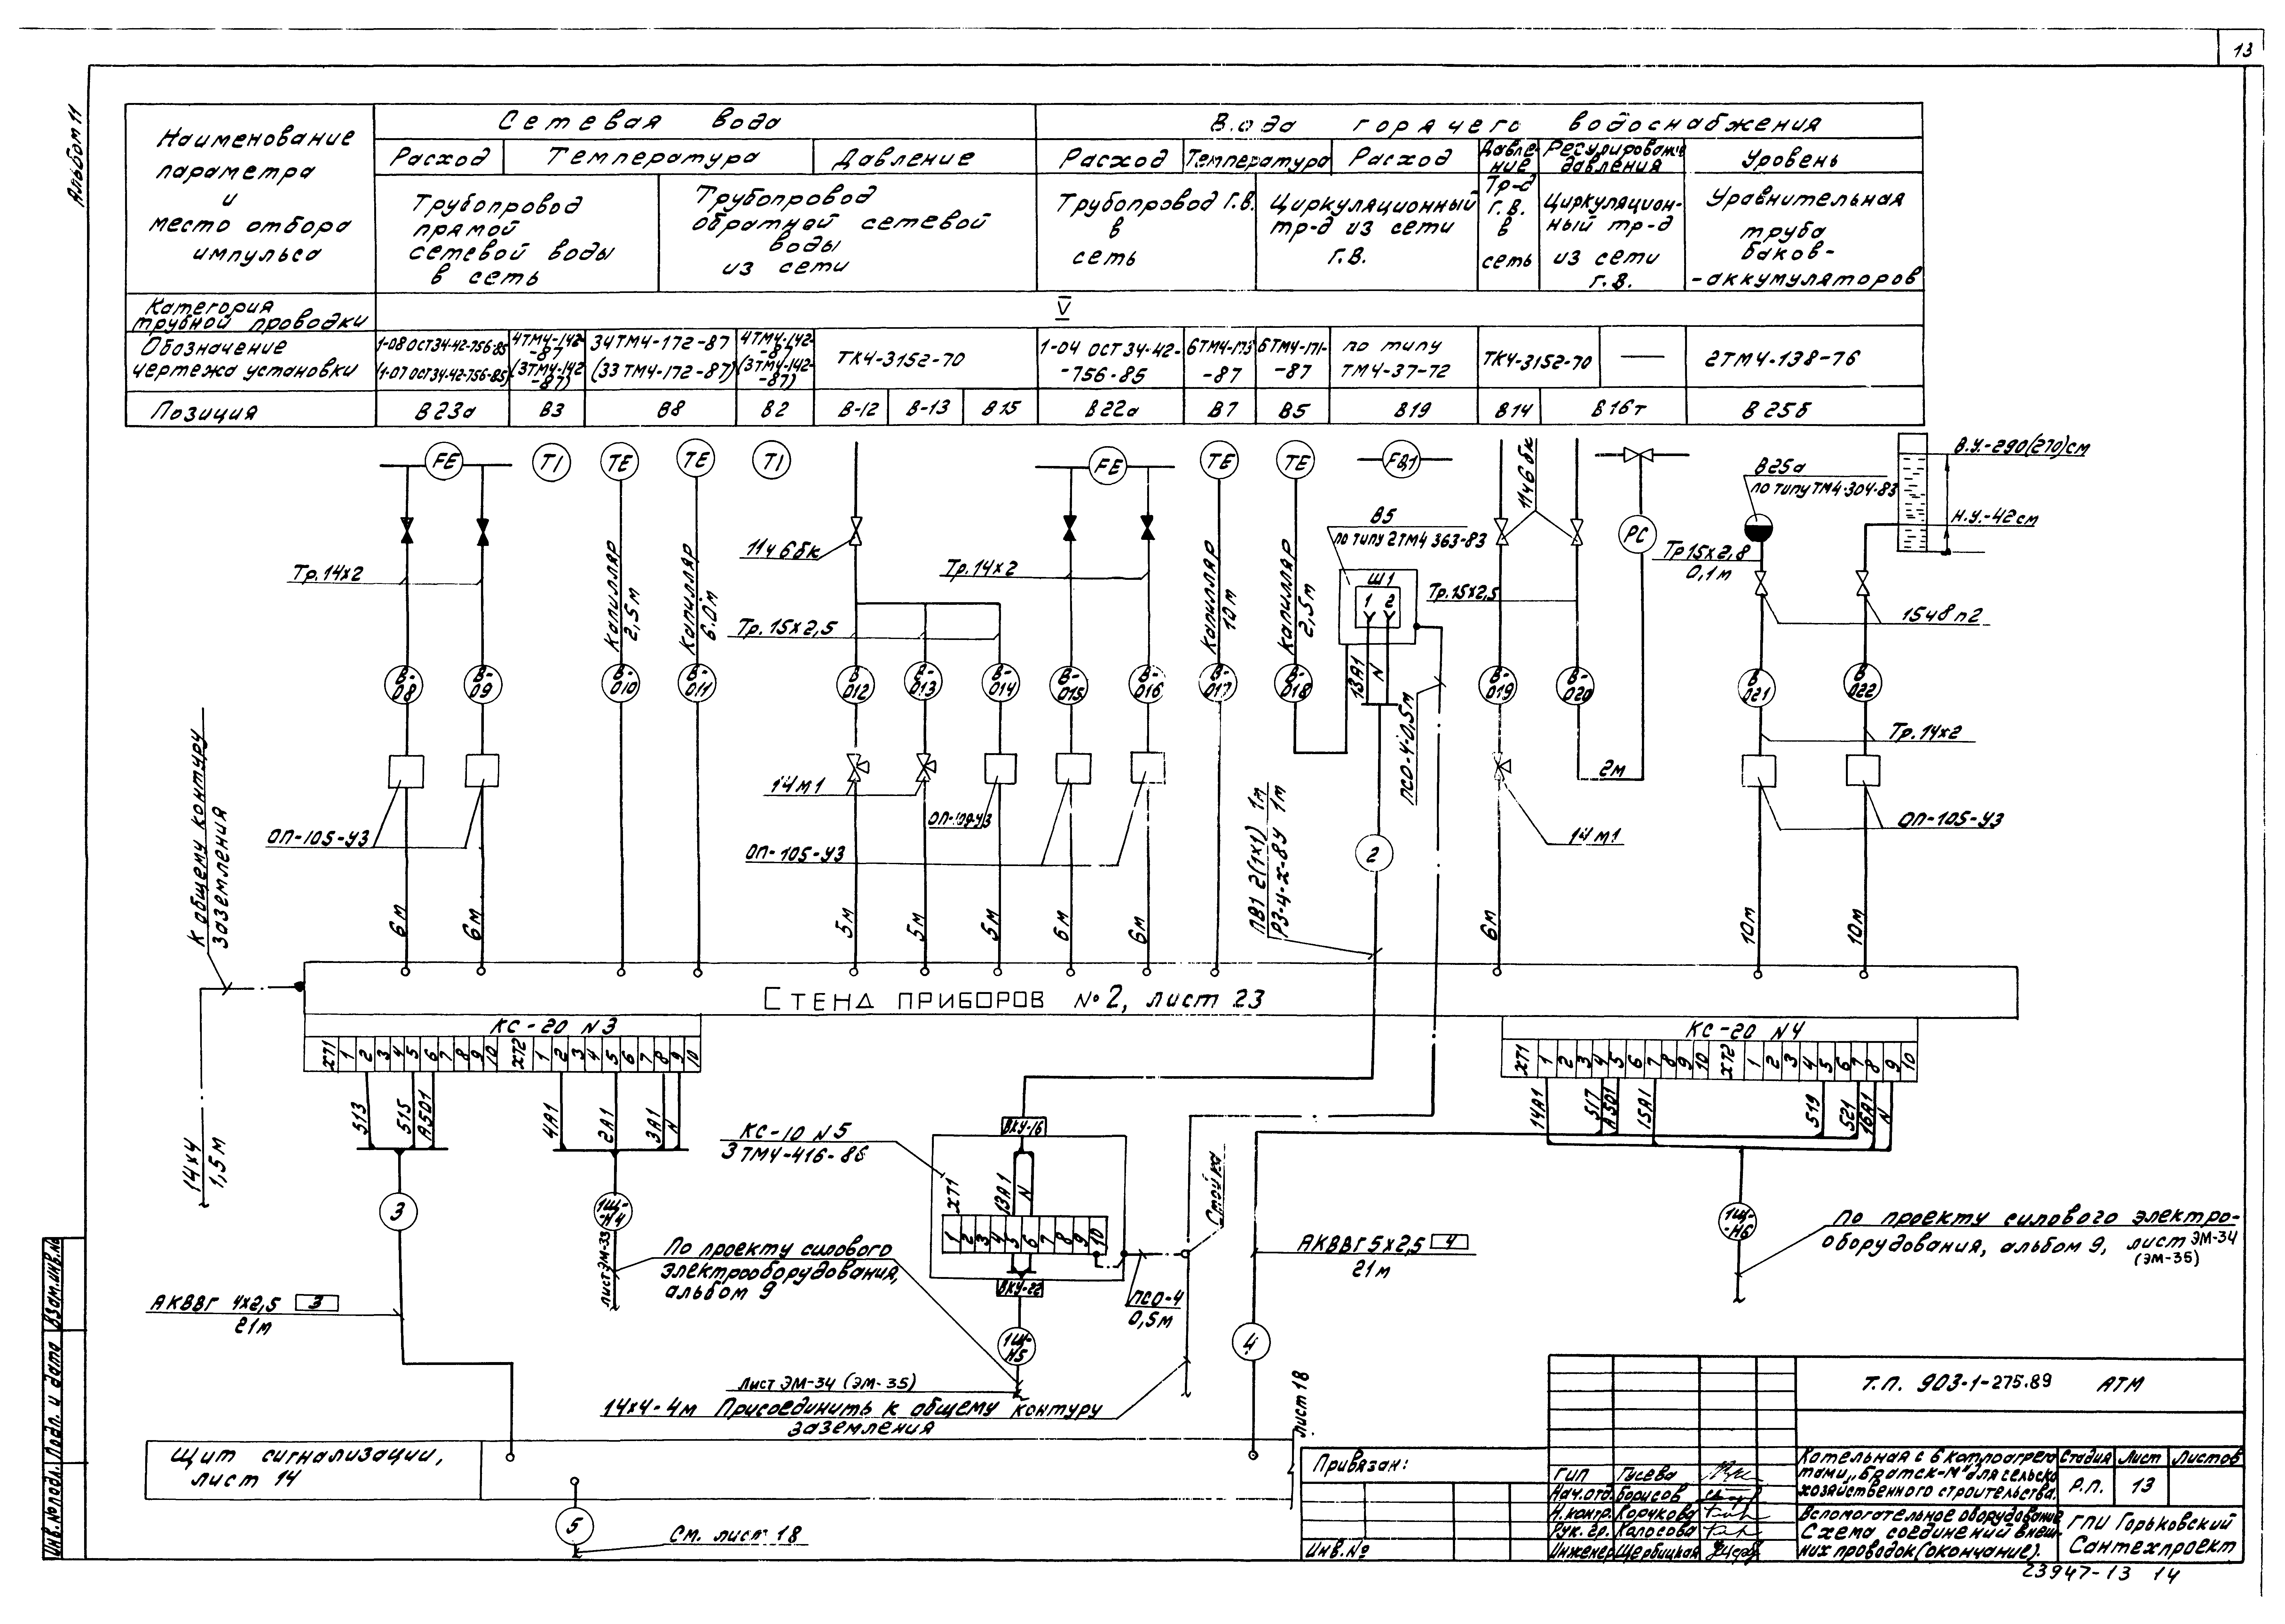 13
Альбом 11
Наименование
параметра
и
место отбора
импульса
Сетевая вода
Вода горячего водоснабжения
Расход
Температура
Давление
Расход
Температура
Расход
Давле-
ние
Регулирование
давления
Уровень
Трубопровод
прямой
сетевой воды
в сеть
Трубопровод
обратной сетевой
воды
из сети
Трубопровод Г.В.
в
сеть
Циркуляционный
тр-д из сети
Г.В.
Тр-д
Г.В.
в
сеть
Циркуляцион-
ный тр-д
из сети
Г.В.
Уравнительная
труба
баков-
-аккумуляторов
Категория
трубной проводки
V
Обозначение
чертежа установки
1-08 ОСТ34-42-756-85
(1-07 ОСТ34-42-756-85)
4ТМ4-142-
-87
(3ТМ4-142
-87)
34ТМ4-172-87
(33ТМ4-172-87)
4ТМ4-142-
-87
(3ТМ4-142-
-87)
ТК4-3152-70
1-04 ОСТ 34-42-
-756-85
6ТМ4-173
-87
6ТМ4-171-
-87
по типу
ТМ4-37-72
ТК4-3152-70
2ТМ4-138-76
Позиция
В23а
В3
В8
В2
В-12
В-13
В15
В22а
В7
В5
В19
В14
В16т
В25б
FE
TI
TE
TE
TI
FE
TE
TE
FQ1
PC
11ч6бк
11ч6бк
В25а
по типу ТМ4-304-83
В.У.-290(270)см
Н.У.-42см
В5
по типу 2ТМ4 363-83
Ш1
1 2
Тр.14х2
Капилляр
2,5м
Капилляр
6.0м
Тр.15х2,5
Тр.14х2
Капилляр
10м
Капилляр
2,5м
Тр.15х2,5
Тр15х2,8
0,1м
15ч8п2
В-
08
В-
09
В-
010
В-
011
В-
012
В-
013
В-
014
В-
015
В-
016
В-
017
В-
018
В-
019
В-
020
В
021
В
022
13А1
N
ПСО-4-0,5м
Тр.14х2
2м
14м1
ОП-105-У3
ОП-109-У3
ОП-105-У3
14м1
ОП-105-У3
2
ПВ1 2(1х1) 1м
РЗ-Ц-Х-8У 1м
К общему контуру
заземления
14х4
1,5м
6м
6м
5м
5м
5м
6м
6м
6м
10м
10м
Стенд приборов №2, лист 23
КС-20 N3
ХТ1 1 2 3 4 5 6 7 8 9 10 ХТ2 1 2 3 4 5 6 7 8 9 10
КС-20 N4
ХТ1 1 2 3 4 5 6 7 8 9 10 ХТ2 1 2 3 4 5 6 7 8 9 10
513
515
А501
4А1
2А1
3А1
N
14А1
517
А501
15А1
519
521
16А1
N
3
1Щ-
-Н4
лист ЭМ-33
КС-10 N5
3ТМ4-416-86
ВКУ-16
ХТ1
13А1
N
1 2 3 4 5 6 7 8 9 10
ВКУ-22
1Щ-
Н5
ПСО-4
0,5м
Стойка
По проекту силового
электрооборудования,
альбом 9
лист ЭМ-34 (ЭМ-35)
14х4-4м Присоединить к общему контуру
заземления
АКВВГ 4х2,5 3
21м
АКВВГ 5х2,5 4
21м
4
1Щ-
Н6
По проекту силового электро-
оборудования, альбом 9, лист ЭМ-34
(ЭМ-35)
Щит сигнализации,
лист 14
5
См. лист 18
Лист 18
Привязан:
Инв.№
Т.П. 903-1-275.89 АТМ
ГИП Гусева
Нач.отд. Борисов
Н.контр. Корчкова
Рук. гр. Колосова
Инженер Щербицкая
Котельная с 6 котлоагрега
тами „Братск-М" для сельско
хозяйственного строительства.
Вспомогательное оборудование
Схема соединений внеш-
них проводок (окончание).
Стадия Лист Листов
Р.П. 13
ГПИ Горьковский
Сантехпроект
23947-13 14
Инв.№подл. Подп. и дата Взам.инв.№